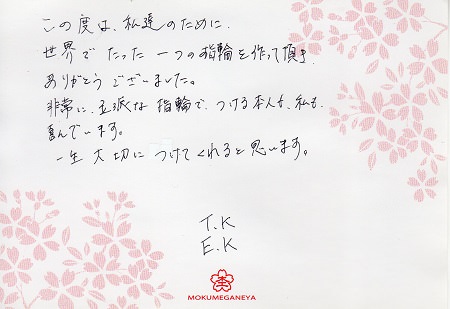 この度は、私達のために、
世界で たった 一つの指輪を作って頂き、
ありがとう ございました。
非常に、立派な 指輪で、つける本人も、私も、
喜んでいます。
一生 大切に つけて くれると 思います。
T.K
E.K
MOKUMEGANEYA